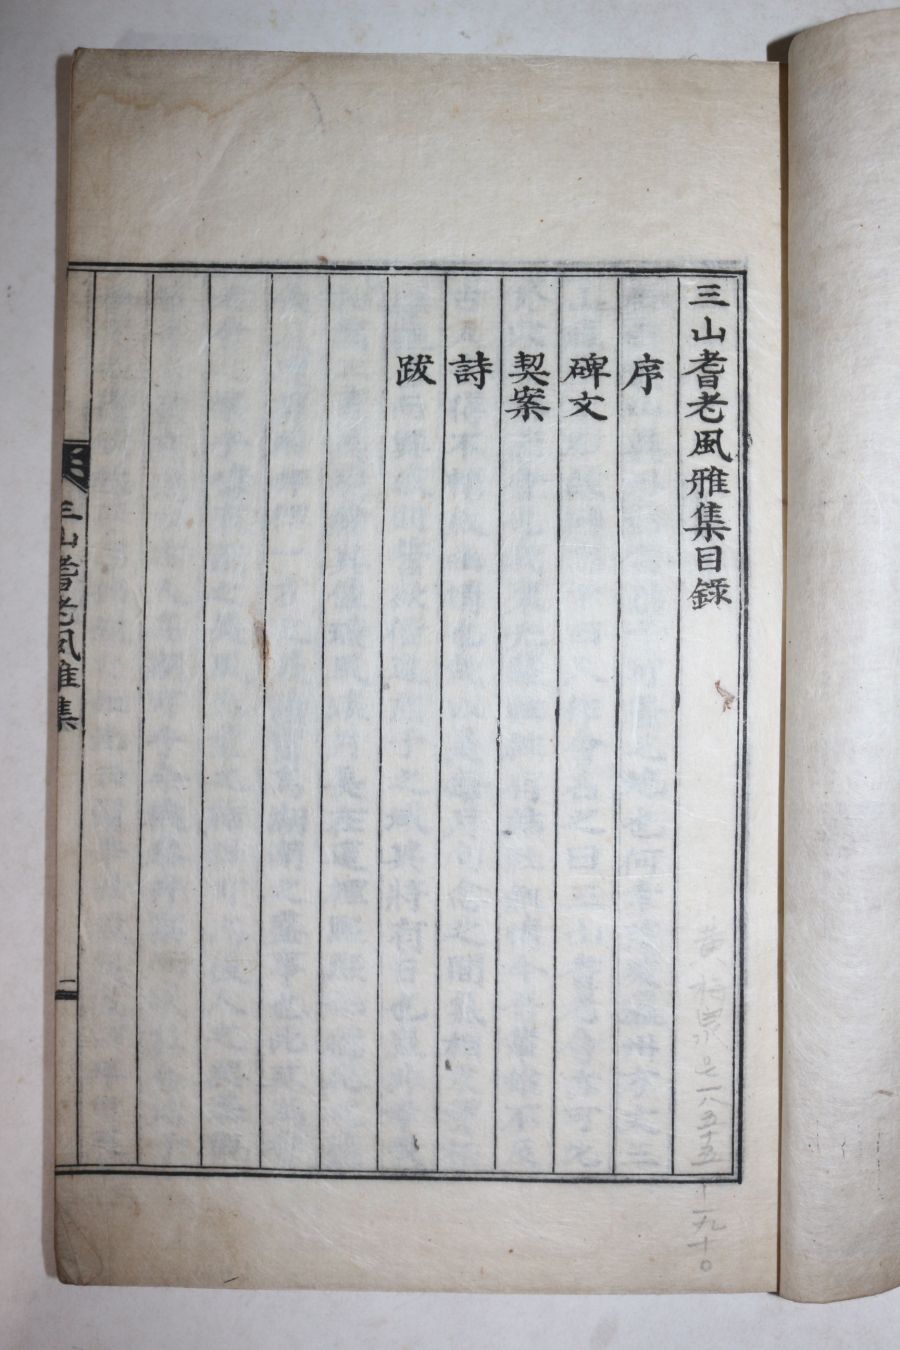 三山耆老風雅集目錄
序
碑文
契案
詩
跋
三山耆老風雅集
一
黃梅泉 一八五五 一九一〇